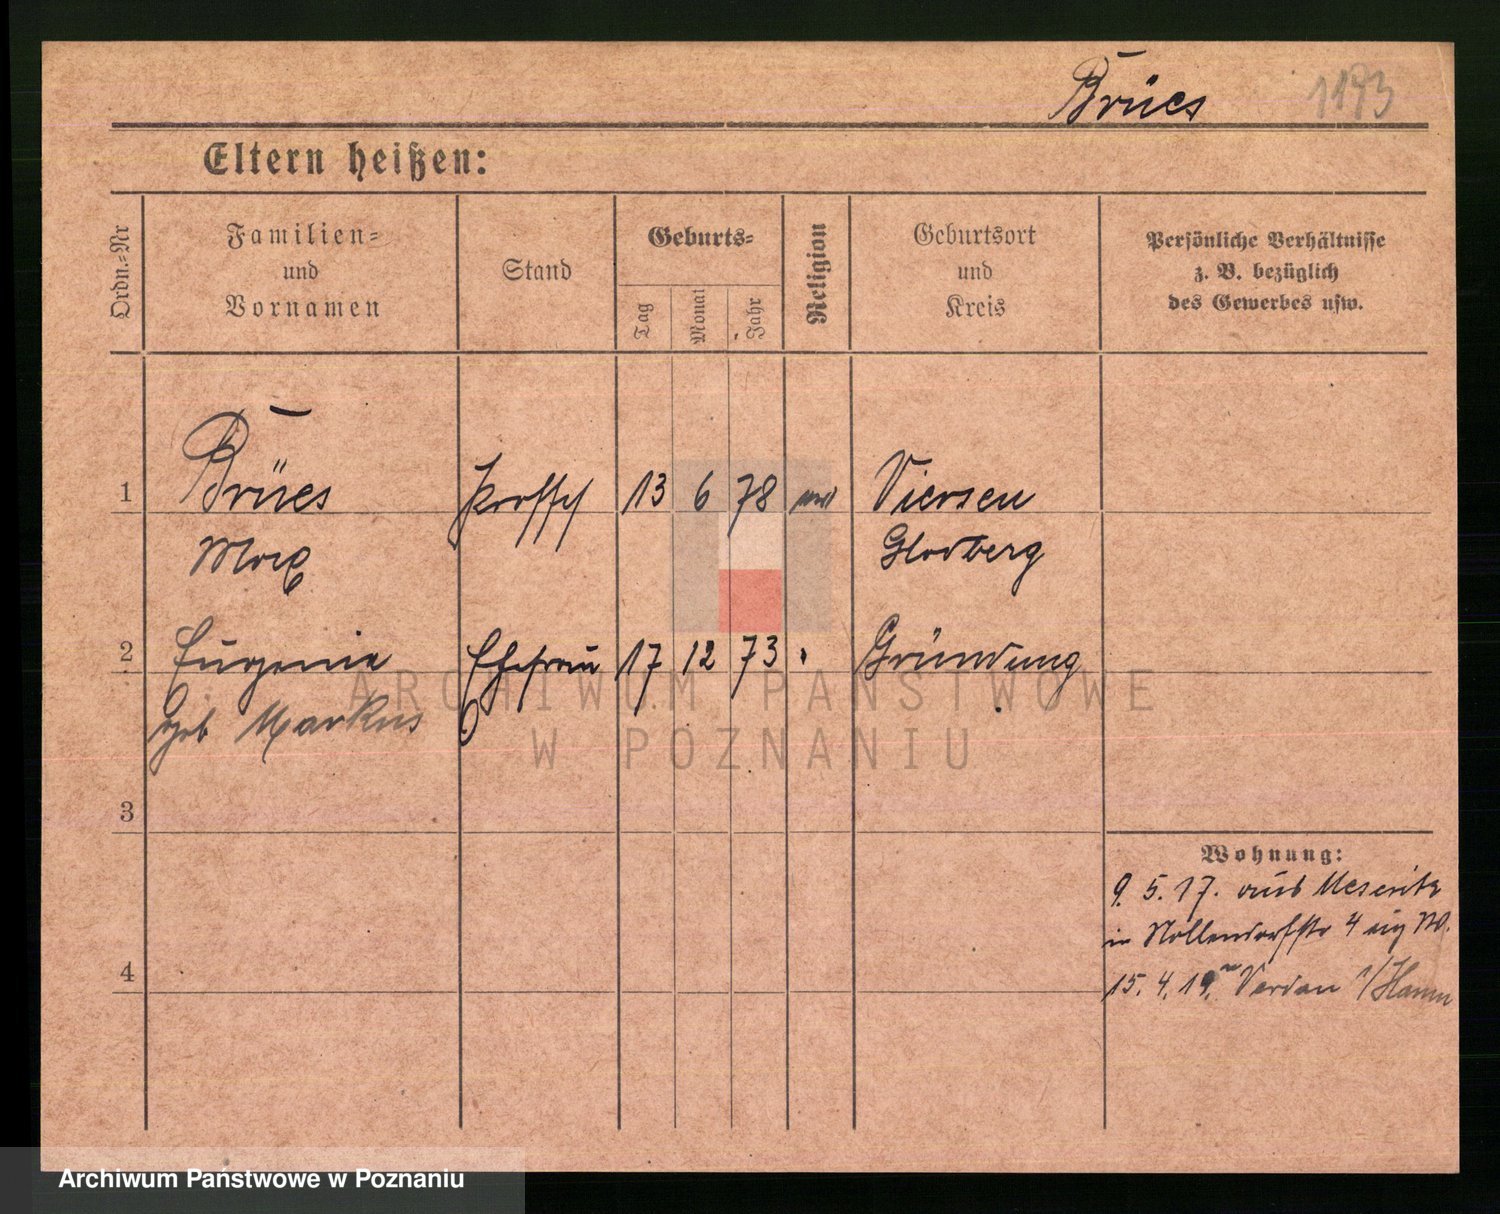 Brües 1193
Eltern heißen:
Ordn.-Nr
Familien-
und
Vornamen
Stand
Geburts-
Tag
Monat
Jahr
Religion
Geburtsort
und
Kreis
Persönliche Verhältnisse
z. B. bezüglich
des Gewerbes usw.
1 Brües 13 6 78 Viersen
Max
2 Eugenie Ehefrau 17 12 73 Gründung
geb Markus
3
4
Wohnung:
9. 5. 17. aus Meseritz
in Nollendorfstr 4
15. 4. 19.
ARCHIWUM PAŃSTWOWE
W POZNANIU
Archiwum Państwowe w Poznaniu